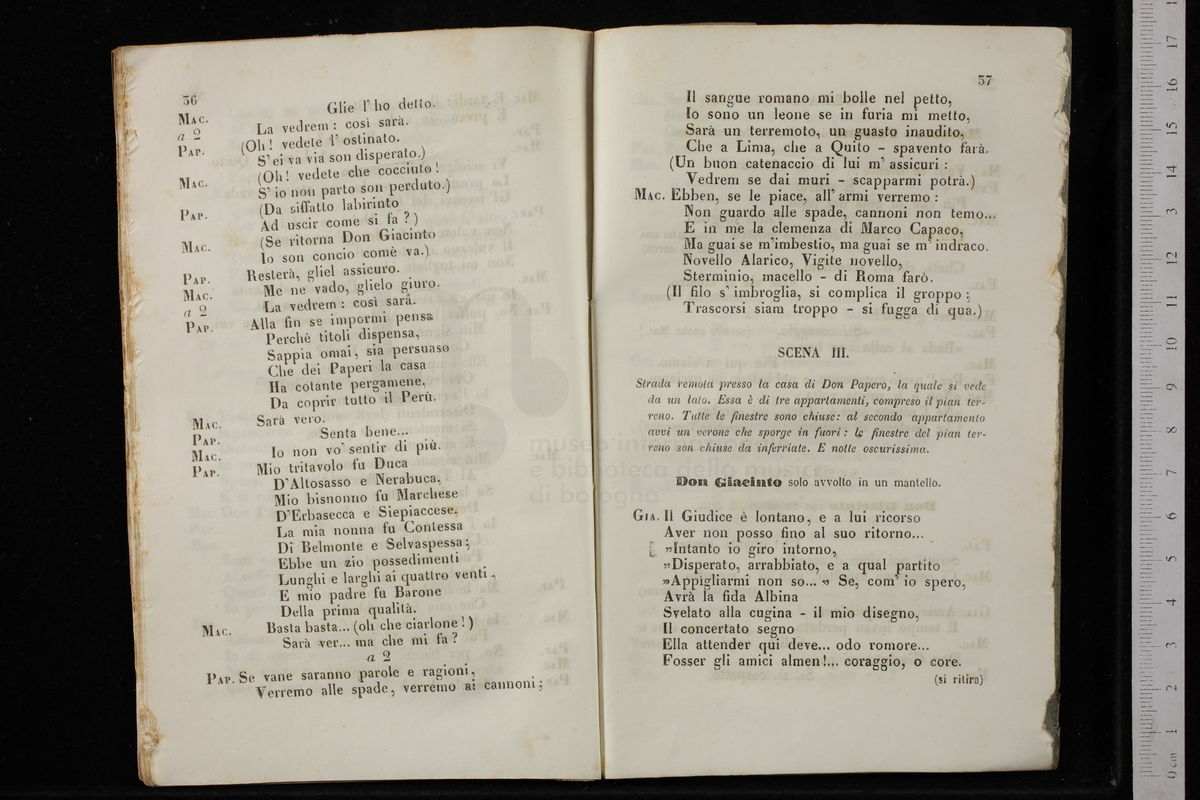 36
MAC. Glie l' ho detto.
a 2 La vedrem : così sarà.
PAP. (Oh! vedete l' ostinato.
S' ei va via son disperato.)
MAC. (Oh! vedete che cocciuto!
S' io non parto son perduto.)
PAP. (Da siffatto labirinto
Ad uscir come si fa ?)
MAC. (Se ritorna Don Giacinto
Io son concio comè va.)
PAP. Resterà, gliel assicuro.
MAC. Me ne vado, glielo giuro.
a 2 La vedrem : così sarà.
PAP. Alla fin se impormi pensa
Perchè titoli dispensa,
Sappia omai, sia persuaso
Che dei Paperi la casa
Ha cotante pergamene,
Da coprir tutto il Perù.
MAC. Sarà vero.
PAP. Senta bene...
MAC. Io non vo' sentir di più.
PAP. Mio tritavolo fu Duca
D'Altosasso e Nerabuca,
Mio bisnonno fu Marchese
D'Erbasecca e Siepiaccese,
La mia nonna fu Contessa
Di Belmonte e Selvaspessa;
Ebbe un zio possedimenti
Lunghi e larghi ai quattro venti,
E mio padre fu Barone
Della prima qualità.
MAC. Basta basta... (oh che ciarlone!)
Sarà ver... ma che mi fa?
a 2
PAP. Se vane saranno parole e ragioni,
Verremo alle spade, verremo ai cannoni;
37
Il sangue romano mi bolle nel petto,
Io sono un leone se in furia mi metto,
Sarà un terremoto, un guasto inaudito,
Che a Lima, che a Quito - spavento farà.
(Un buon catenaccio di lui m' assicuri :
Vedrem se dai muri - scapparmi potrà.)
MAC. Ebben, se le piace, all' armi verremo :
Non guardo alle spade, cannoni non temo...
E in me la clemenza di Marco Capaco,
Ma guai se m'imbestio, ma guai se m' indraco.
Novello Alarico, Vigite novello,
Sterminio, macello - di Roma farò.
(Il filo s' imbroglia, si complica il groppo ;
Trascorsi siam troppo - si fugga di qua.)
SCENA III.
Strada remota presso la casa di Don Papero, la quale si vede
da un lato. Essa è di tre appartamenti, compreso il pian ter-
reno. Tutte le finestre sono chiuse: al secondo appartamento
avvi un verone che sporge in fuori : le finestre del pian ter-
reno son chiuse da inferriate. E notte oscurissima.
Don Giacinto solo avvolto in un mantello.
GIA. Il Giudice è lontano, e a lui ricorso
Aver non posso fino al suo ritorno...
»Intanto io giro intorno,
»Disperato, arrabbiato, e a qual partito
»Appigliarmi non so... » Se, com' io spero,
Avrà la fida Albina
Svelato alla cugina - il mio disegno,
Il concertato segno
Ella attender qui deve... odo romore...
Fosser gli amici almen!... coraggio, o core.
(si ritira)
museo internazionale
e biblioteca della musica
di bologna